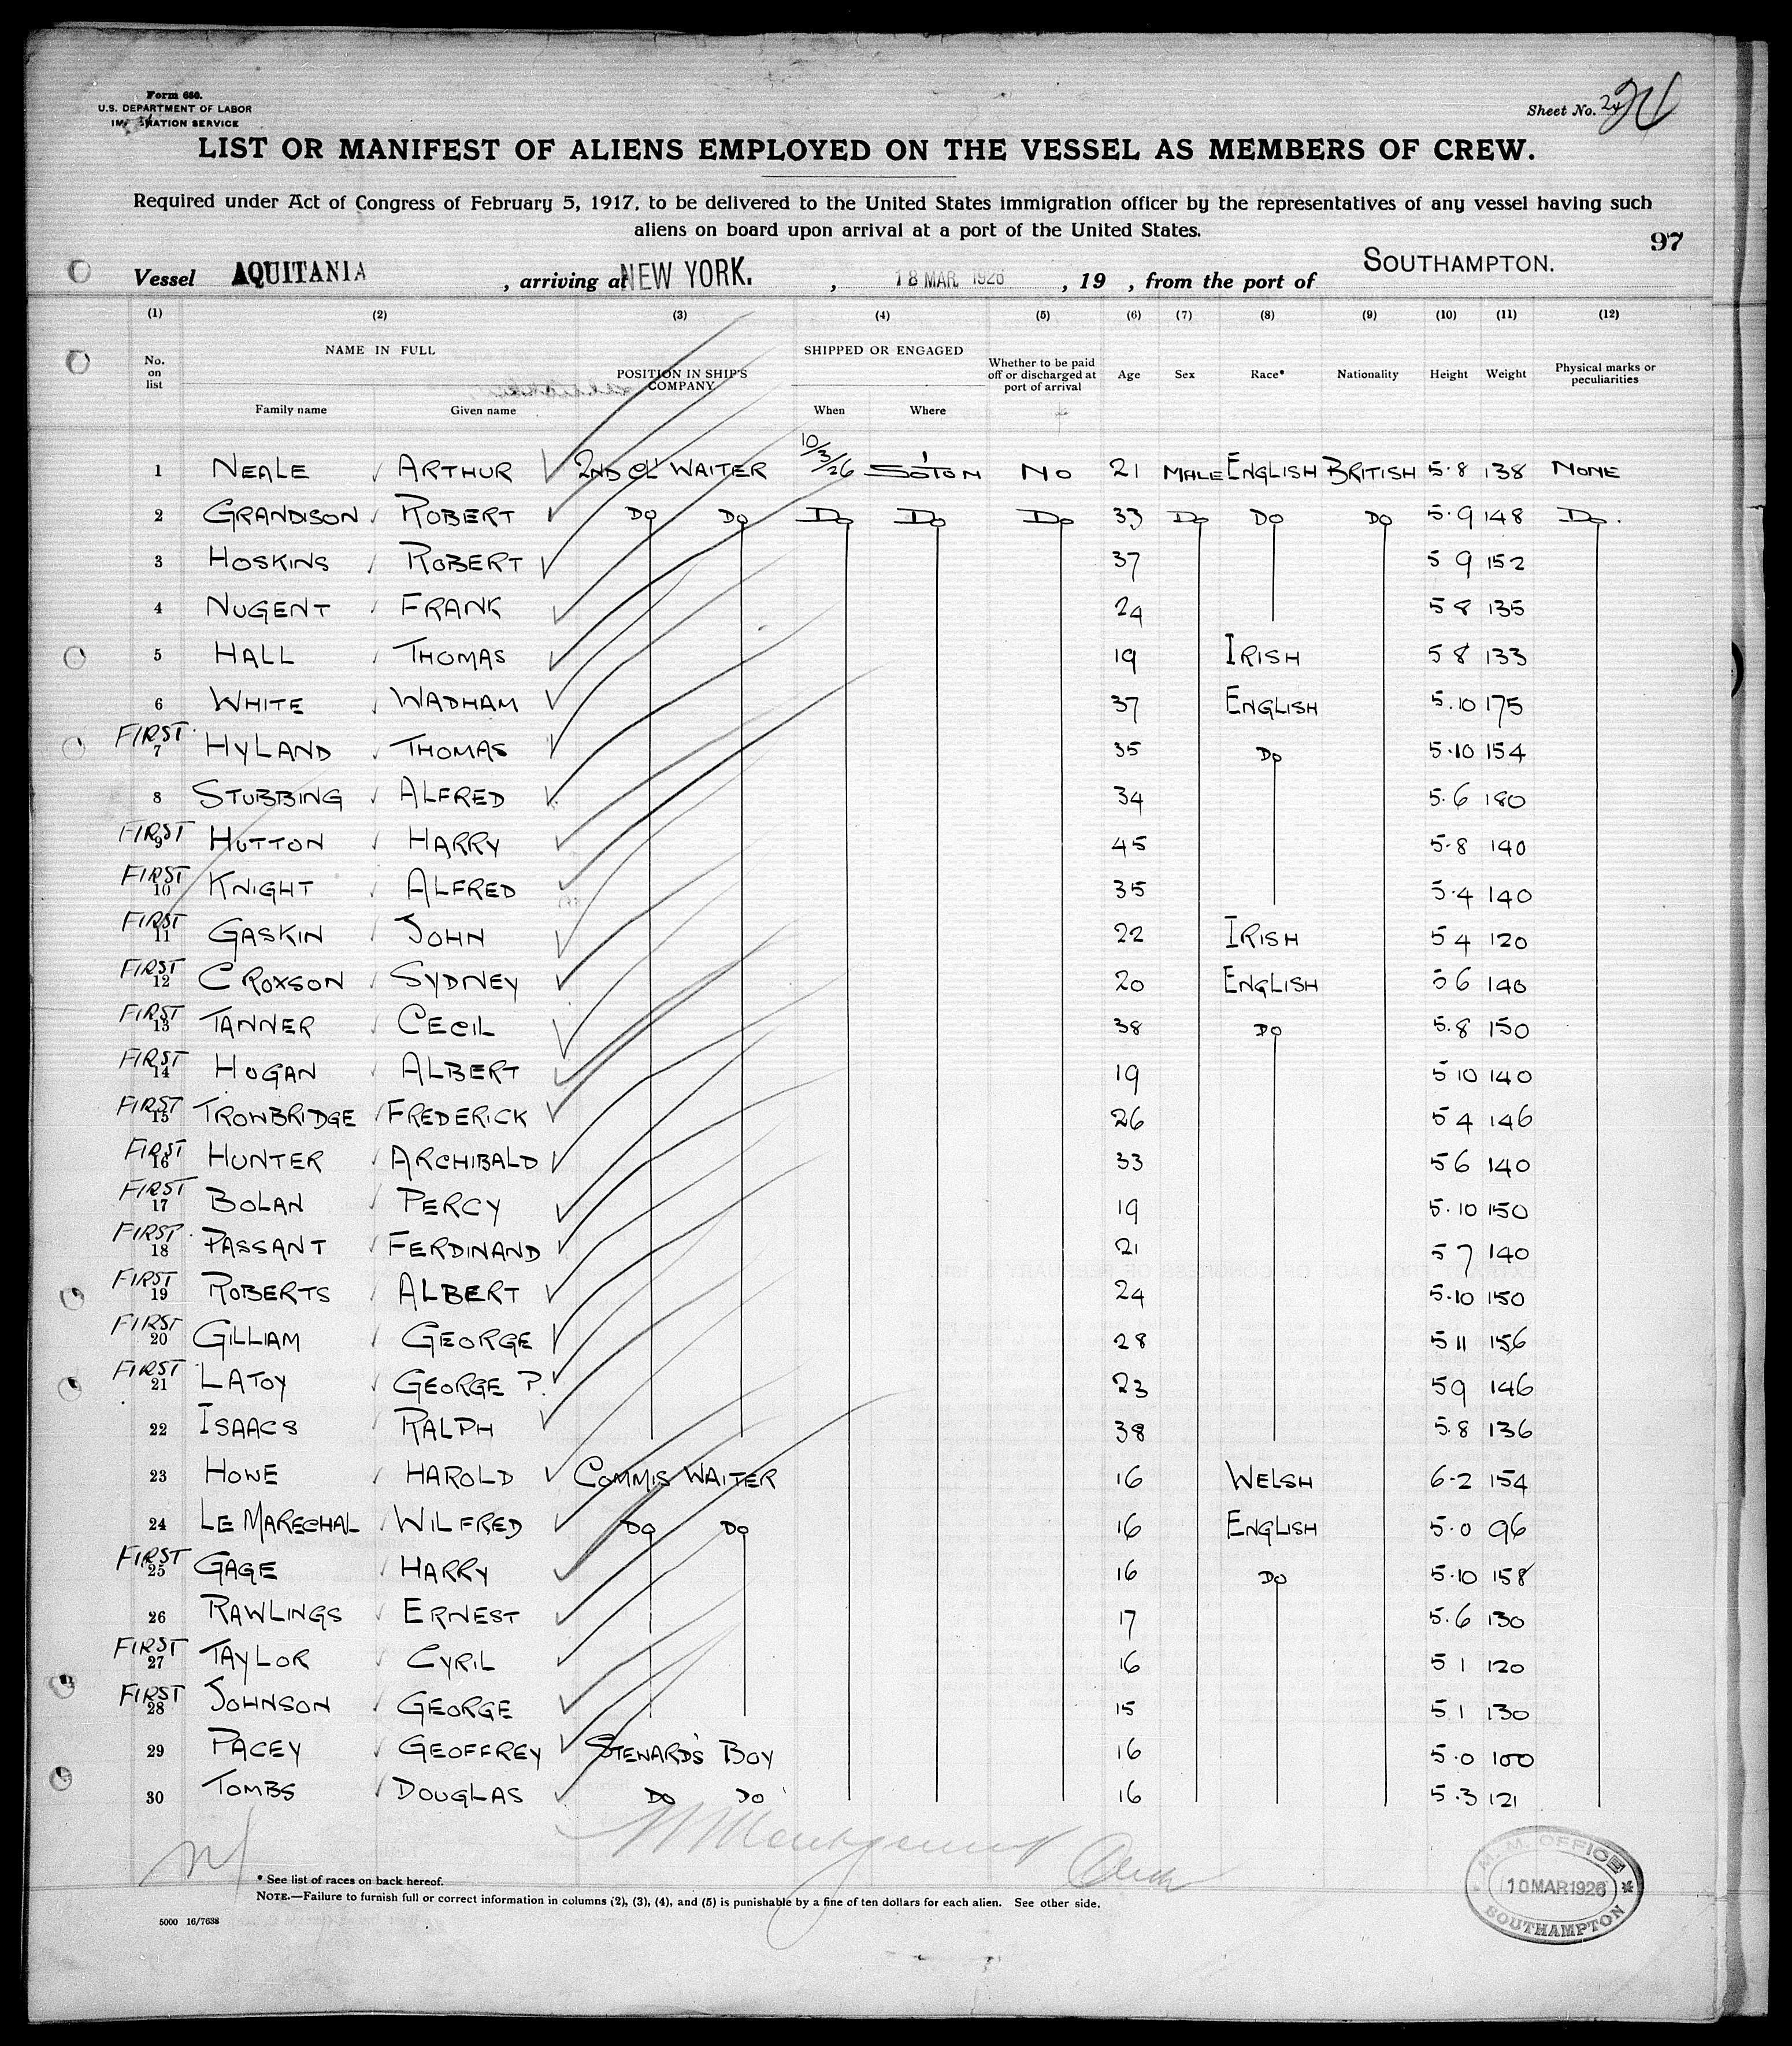 Form 680.
U.S. DEPARTMENT OF LABOR
IMMIGRATION SERVICE
Sheet No. 24
LIST OR MANIFEST OF ALIENS EMPLOYED ON THE VESSEL AS MEMBERS OF CREW.
Required under Act of Congress of February 5, 1917, to be delivered to the United States immigration officer by the representatives of any vessel having such
aliens on board upon arrival at a port of the United States.
97
Vessel AQUITANIA, arriving at NEW YORK., 18 MAR. 1926, 19 , from the port of SOUTHAMPTON.
(1) (2) (3) (4) (5) (6) (7) (8) (9) (10) (11) (12)
No. on list NAME IN FULL Family name Given name POSITION IN SHIP'S COMPANY SHIPPED OR ENGAGED When Where Whether to be paid off or discharged at port of arrival Age Sex Race* Nationality Height Weight Physical marks or peculiarities
1 NEALE ARTHUR 2ND CL WAITER 10/3/26 SO'TON NO 21 MALE ENGLISH BRITISH 5·8 138 NONE
2 GRANDISON ROBERT DO DO DO DO DO 33 DO DO DO 5·9 148 DO.
3 HOSKINS ROBERT 37 5 9 152
4 NUGENT FRANK 24 5 8 135
5 HALL THOMAS 19 IRISH 5 8 133
6 WHITE WADHAM 37 ENGLISH 5·10 175
FIRST 7 HYLAND THOMAS 35 DO 5·10 154
8 STUBBING ALFRED 34 5·6 180
FIRST 9 HUTTON HARRY 45 5·8 140
FIRST 10 KNIGHT ALFRED 35 5·4 140
FIRST 11 GASKIN JOHN 22 IRISH 5 4 120
FIRST 12 CROXSON SYDNEY 20 ENGLISH 5 6 140
FIRST 13 TANNER CECIL 38 DO 5·8 150
FIRST 14 HOGAN ALBERT 19 5 10 140
FIRST 15 TROWBRIDGE FREDERICK 26 5 4 146
FIRST 16 HUNTER ARCHIBALD 33 5 6 140
FIRST 17 BOLAN PERCY 19 5·10 150
FIRST 18 PASSANT FERDINAND 21 5 7 140
FIRST 19 ROBERTS ALBERT 24 5·10 150
FIRST 20 GILLIAM GEORGE 28 5 11 156
FIRST 21 LATOY GEORGE P. 23 5 9 146
22 ISAACS RALPH 38 5·8 136
23 HOWE HAROLD COMMIS WAITER 16 WELSH 6·2 154
24 LE MARECHAL WILFRED DO DO 16 ENGLISH 5·0 96
FIRST 25 GAGE HARRY 16 DO 5·10 158
26 RAWLINGS ERNEST 17 5·6 130
FIRST 27 TAYLOR CYRIL 16 5 1 120
FIRST 28 JOHNSON GEORGE 15 5·1 130
29 PACEY GEOFFREY STEWARD'S BOY 16 5·0 100
30 TOMBS DOUGLAS DO DO 16 5·3 121
* See list of races on back hereof.
NOTE.—Failure to furnish full or correct information in columns (2), (3), (4), and (5) is punishable by a fine of ten dollars for each alien. See other side.
5000 16/7638
M.M. OFFICE
10 MAR 1926
SOUTHAMPTON